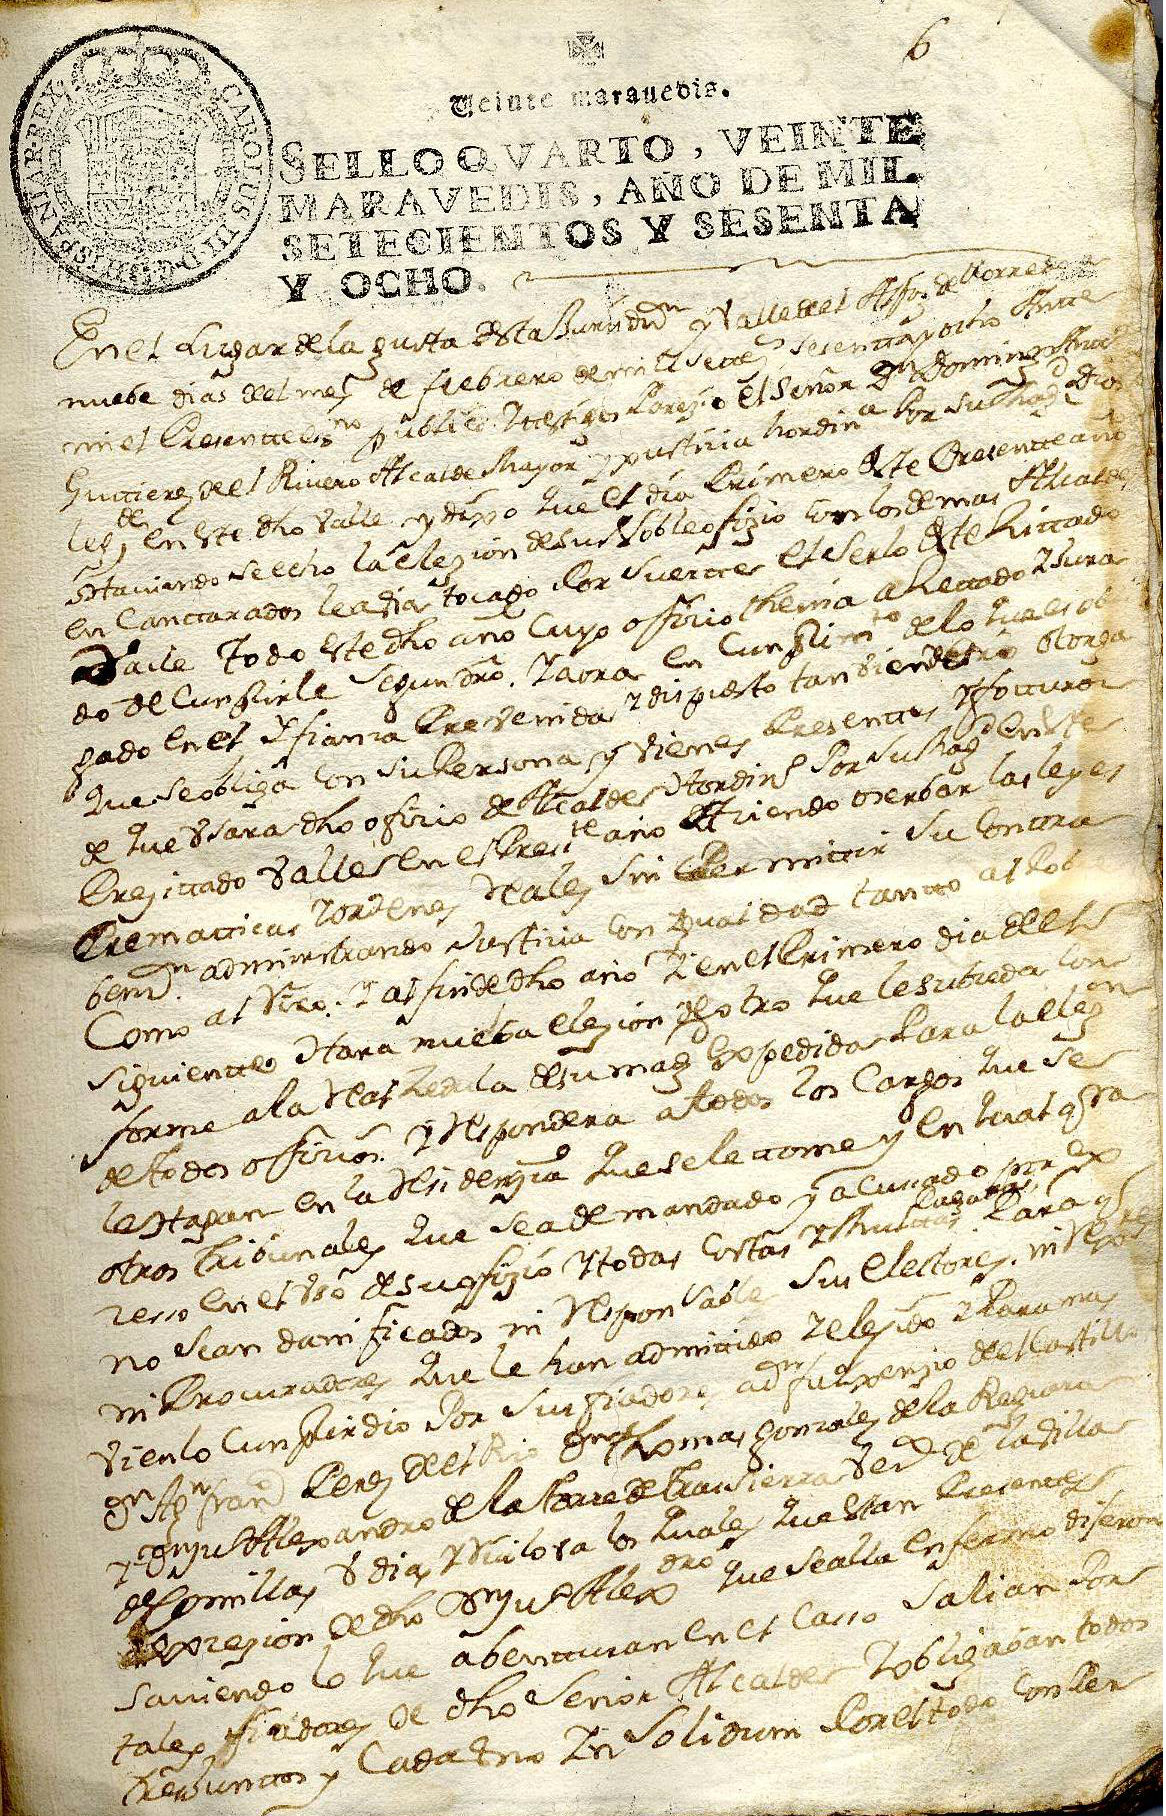 6
Veinte maravedis.
CAROLUS III D G HISPANIAR REX
SELLO QVARTO, VEINTE
MARAVEDIS, AÑO DE MIL
SETECIENTOS Y SESENTA
Y OCHO.
En el Lugar de la gusta desta y Valle de el Alfoz de Lorredo
nuebe dias del mes de febrero de mill settes sesentta y ocho Antte
mi el Presentte essno publico testigos Parezio el señor Dn Domingo
Guttierez de el Rivero Alcalde Mayor y justicia hordina Por su Magd Dios
legde en Este dho Valle y dijo que el dia Primero deste Presentte año
Estaviendo sechio la elezion desus Noble ofizio con los demas Alcaldes
en canttarados le a tocado Por suertte el serlo deste Zittado
Valle Todo Este dho año Cuyo offizio thenia azettado y
do de Cunplirle segun dro. y aora en Cunplimto de lo
gado en el y fianza Prevenida y dispuesto tanvien otorga
que se obliga con su Persona y vienes Presenttes y futturos
de que Usara dho ofizio de Alcalde Hordino Por su Magd en Este
Prezittado Valle en el Prestte año haziendo oserbar las leyes
Prematticas y ordenes Reales sin Permittir su Conttra
benzn administrando Justizia con ygualdad tantto al Pob
Como al Rico. y al fin de dho año y en el Primero dia de el
siguientte Hara nueba elezion de otro que le subzeda Con
forme a la Real Zedula de su magd expedida Para la elezon
de todos offizios. y Respondera a todos los Cargos que se
le Hagan en la Residenzia que se le ttome y en qual qra
otros Tribunales que sea demandado y acusado por ex
zesso en el Uso de su offizio y todas costas Pagara Para q
no sean danificados ni Responsables sus Electores. ni
ni Procuradores que le han admittido y elejido y Para mas
vien lo cunplir dio Por sus fiadores a Dn fulxenzio de el Castillo
Dn Franco Perez de el Rio Dn Thomas Gonzalez de la Reguera
y Dn Alexandro de la Torre de Trasierra
de Comillas Udias y Ruiloba los quales que estan Presenttes
a exzepzion de dho Dn Alexdro que se alla enfermo dijeron
Saviendo lo que abentturan en el Casso salian Por
tales fiadores de dho Señor Alcalde y obligaban todos
Juntos y Cada Uno Yn Solidum Por el todo con Per